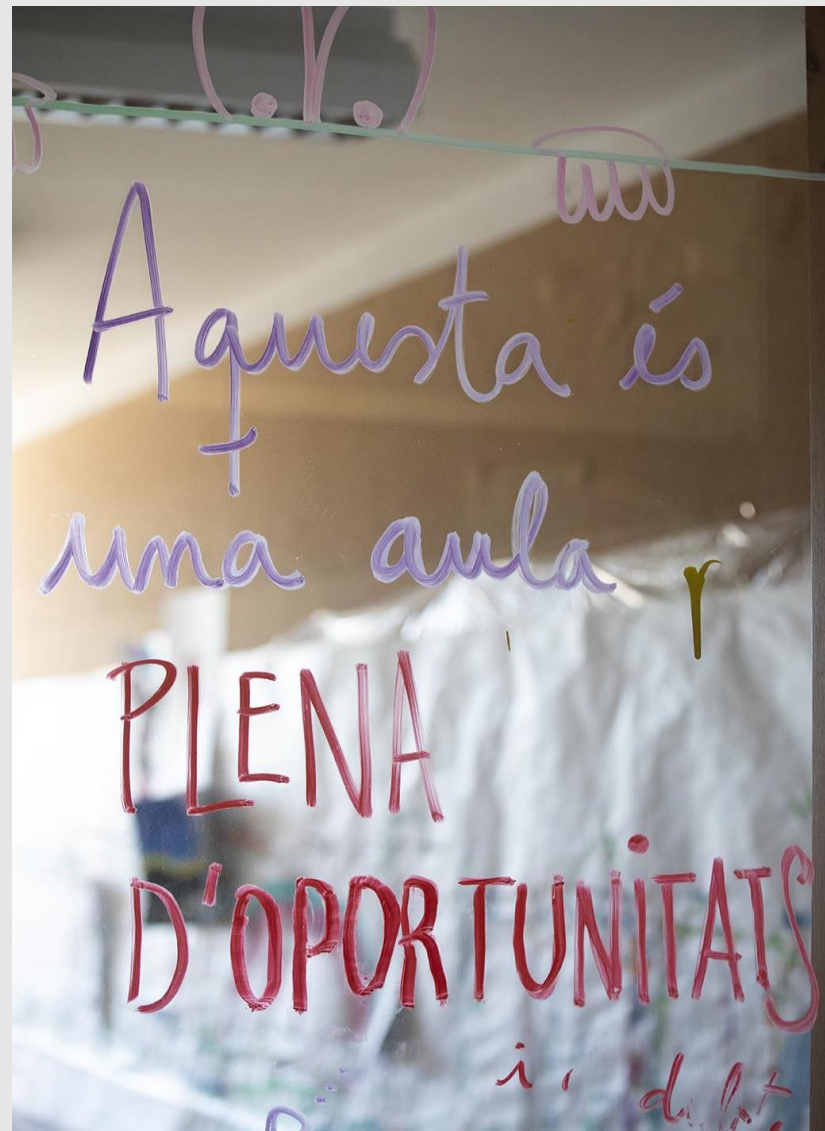 Aquesta és
una aula
PLENA
D'OPORTUNiTATS